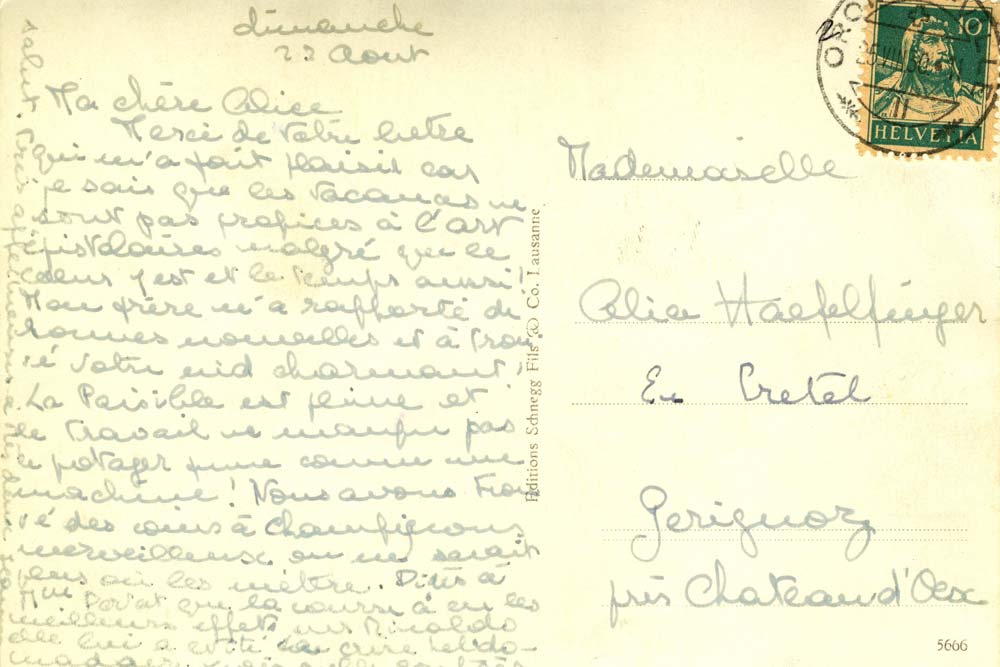 dimanche
22 Août
Ma chère Alice
Merci de votre lettre
qui m'a fait plaisir car
je sais que les vacances ne
sont pas propices à l'art
épistolaires malgré que le
coeur y est et le temps aussi!
Mon frère m'a rapporté de
bonnes nouvelles et à trou
vé votre nid charmant!
La Paisible est pleine et
le travail ne manque pas
le potager fume comme une
machine! Nous avons trou
vé des coins à champignons
merveilleux on ne savait
plus où les mettre. Dites à
Mme que la à eu les
meilleurs effets sur Rinaldo
elle lui a évité sa crise hebdo-
madaire
salut.
Editions Schnegg Fils & Co. Lausanne
10
HELVETIA
ORO
25.VIII.30
Mademoiselle
Alice Haefelfinger
En Cretel
Gerignoz
près Chateau d'Oex
5666